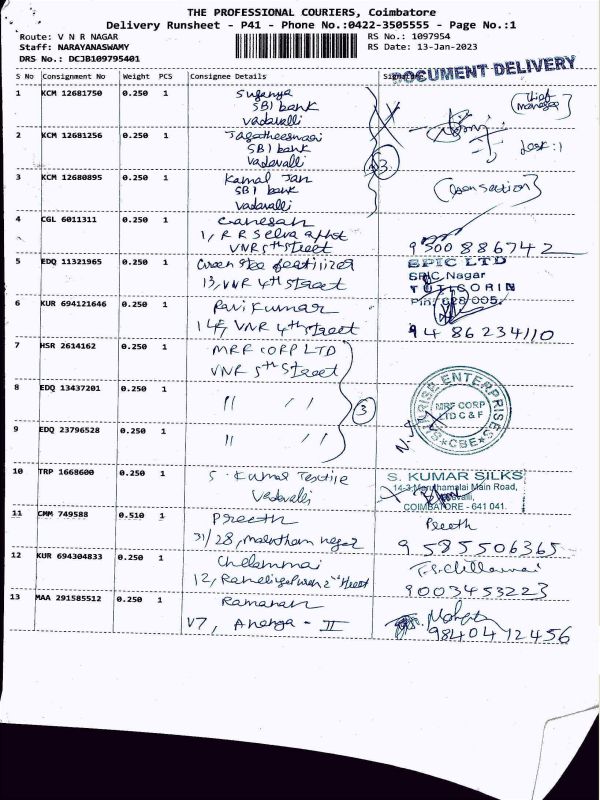 THE PROFESSIONAL COURIERS, Coimbatore
Delivery Runsheet - P41 - Phone No.:0422-3505555 - Page No.:1
Route: V N R NAGAR
RS No.: 1097954
Staff: NARAYANASWAMY
RS Date: 13-Jan-2023
DRS No.: DCJB109795401
DOCUMENT DELIVERY
S No Consignment No Weight PCS Consignee Details Signature
1 KCM 12681750 0.250 1 Suganya
SBI bank
Vadavalli
2 KCM 12681256 0.250 1 Jagatheeswari
SBI bank
Vadavalli
Desk:1
3
3 KCM 12680895 0.250 1 Kamal Jan
SBI bank
Vadavalli
4 CGL 6011311 0.250 1 Ganesan
1, R R Selva
VNR 5th Street
9500886742
5 EDQ 11321965 0.250 1 Green Stee Feartilizer
13, VNR 4th Street
SPIC LTD
SPIC Nagar
TUTICORIN
Pin: 628 005.
6 KUR 694121646 0.250 1 Ravi Kumar
14F, VNR 4th Street
9486234110
7 HSR 2614162 0.250 1 MRF CORP LTD
VNR 5th Street
8 EDQ 13437201 0.250 1 " "
3
SUNRISE ENTERPRISES
MRF CORP
LTD C & F
CBE
9 EDQ 23796528 0.250 1 " "
10 TRP 1668600 0.250 1 S. Kumar Textile
Vadavalli
S. KUMAR SILKS
14-3 Maruthamalai Main Road,
COIMBATORE - 641 041.
11 CMM 749588 0.510 1 Preeth
31/28, Marutham nagar
Preeth
9585506365
12 KUR 694304833 0.250 1 Chelammai
12, 2nd Street
9003453223
13 MAA 291585512 0.250 1 Ramanan
V7, Ananya - II
9840412456